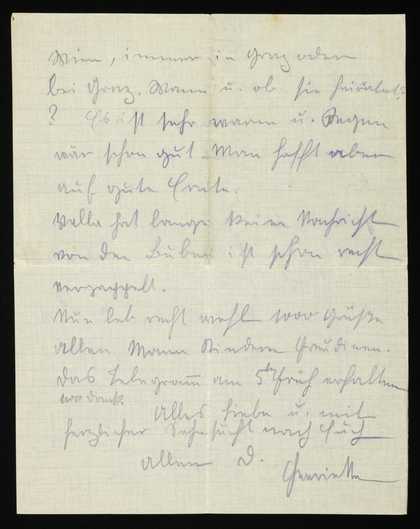 Wien, immer in Graz oder
bei Graz. Wann u. ob sie heiratet
? Es ist sehr warm u. Regen
wär schon gut. Man hofft aber
auf gute Ernte.
hat lange keine Nachricht
von den Buben ist schon recht
verzappelt.
Nun leb recht wohl 1000 Grüße
allen Kindern
Das Telegramm am 5. früh erhalten
Alles Liebe u. mit
herzlicher Sehnsucht nach Euch
allen D.
Henriette